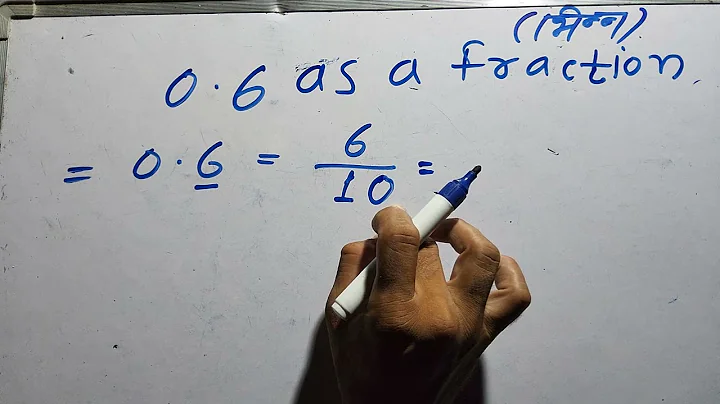 (भिन्न)
0.6 as a fraction
= 0.6 = 6/10 =